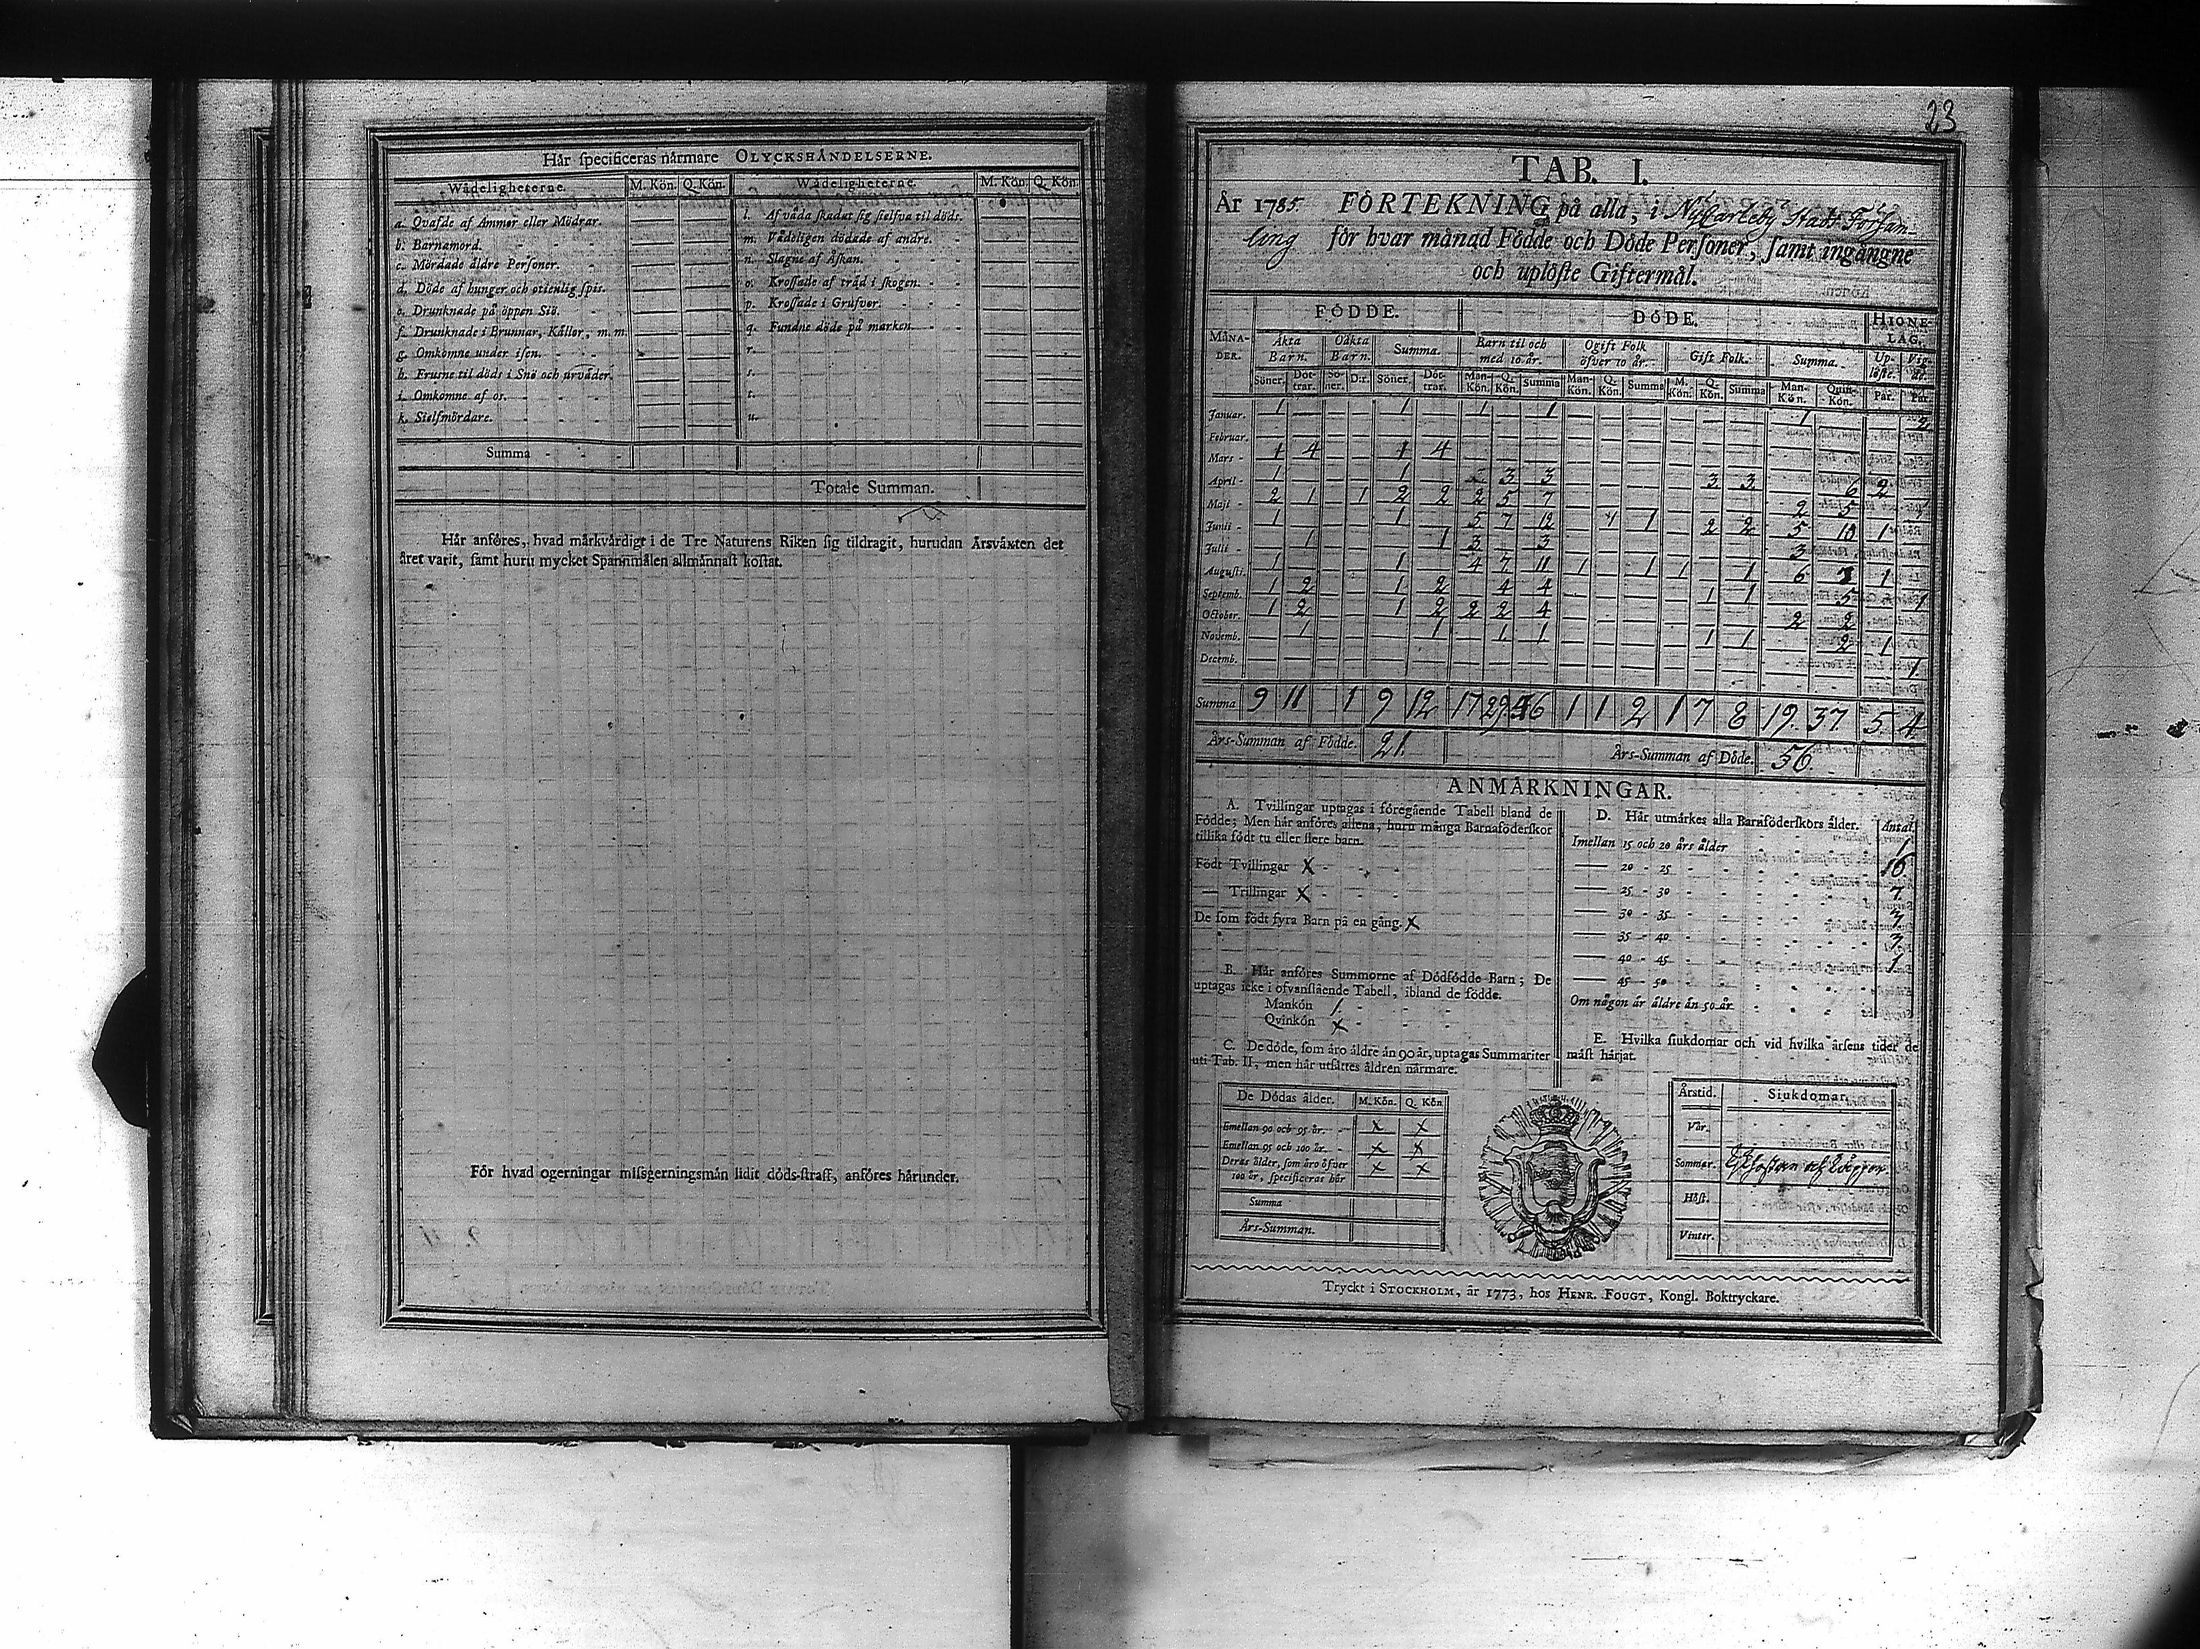 Här specificeras närmare OLYCKSHÄNDELSERNE.
Wådeligheterne. M. Kön. Q. Kön. Wådeligheterne. M. Kön. Q. Kön.
a. Qvafde af Ammor eller Mödrar. l. Af våda skadat sig sielfva til döds.
b. Barnamord. m. Vådeligen dödade af andre.
c. Mördade äldre Personer. n. Slagne af Åskan.
d. Döde af hunger och otienlig spis. o. Krossade af träd i skogen.
e. Drunknade på öppen Siö. p. Krossade i Grufvor.
f. Drunknade i Brunnar, Källor, m. m. q. Fundne döde på marken.
g. Omkomne under isen. r.
h. Frusne til döds i Snö och urväder. s.
i. Omkomne af os. t.
k. Sielfmördare. u.
Summa
Totale Summan.
Här anföres, hvad märkvärdigt i de Tre Naturens Riken sig tildragit, hurudan Årsväxten det
året varit, samt huru mycket Spannmålen allmännast kostat.
För hvad ogerningar missgerningsmän lidit döds-straff, anföres härunder.
23
TAB. I.
År 1785. FÖRTEKNING på alla, i Nycarleby Stads Försam-
ling för hvar månad Födde och Döde Personer, samt ingångne
och uplöste Giftermål.
MÅNA-DER. FÖDDE. DÖDE. HIONELAG.
Äkta Barn. Oäkta Barn. Summa. Barn til och med 10. år. Ogift Folk öfver 10 år. Gift Folk. Summa. Up-löste. Vig-de.
Söner. Döt-trar. Sö-ner. D:r. Söner. Döt-trar. Man-Kön. Q. Kön. Summa Man-Kön. Q. Kön. Summa M. Kön. Q. Kön. Summa Man-Kön. Quin-Kön. Par. Par.
Januar. 1 1 1 1 1 2
Februar.
Mars 1 4 1 4
April 1 1 3 3 3 3 6 2
Maji 2 1 1 2 2 2 5 7 2 5
Junii 1 1 5 7 12 1 1 2 2 5 10 1
Julii 1 1 3 3 3
Augusti. 1 1 4 7 11 1 1 1 1 6 1
Septemb. 1 2 1 2 4 4 1 1 5 1
October. 1 2 1 2 2 2 4 2 2
Novemb. 1 1 1 1 1 1 2 1
Decemb. 1.
Summa 9 11 1 9 12 17 29 46 1 1 2 1 7 8 19. 37. 5. 4
Års-Summan af Födde. 21. Års-Summan af Döde. 56.
ANMÄRKNINGAR.
A. Tvillingar uptagas i föregående Tabell bland de
Födde; Men här anföres allena, huru många Barnaföderskor
tillika födt tu eller flere barn.
Födt Tvillingar X
— Trillingar X
De som födt fyra Barn på en gång. X
B. Här anföres Summorne af Dödfödde Barn; De
uptagas icke i ofvanstående Tabell, ibland de födde.
Mankön 1.
Qvinkön X
C. De döde, som äro äldre än 90 år, uptagas Summariter
uti Tab. II, men här utsättes åldren närmare.
De Dödas ålder. M. Kön. Q. Kön
Emellan 90 och 95 år. X X
Emellan 95 och 100 år. X X
Deras ålder, som äro öfver X X
100 år, specificeras här
Summa
Års-Summan.
D. Här utmärkes alla Barnföderskors ålder. Antal.
Imellan 15 och 20 års ålder 1
— 20 - 25 16
— 25 - 30 7.
— 30 - 35
— 35 - 40
— 40 - 45 1.
— 45 - 50
Om någon är äldre än 50 år
E. Hvilka siukdomar och vid hvilka årsens tider de
mäst härjat.
Årstid. Siukdomar.
Vår.
Sommar. och Koppor.
Höst.
Vinter.
Tryckt i STOCKHOLM, år 1773, hos HENR. FOUGT, Kongl. Boktryckare.